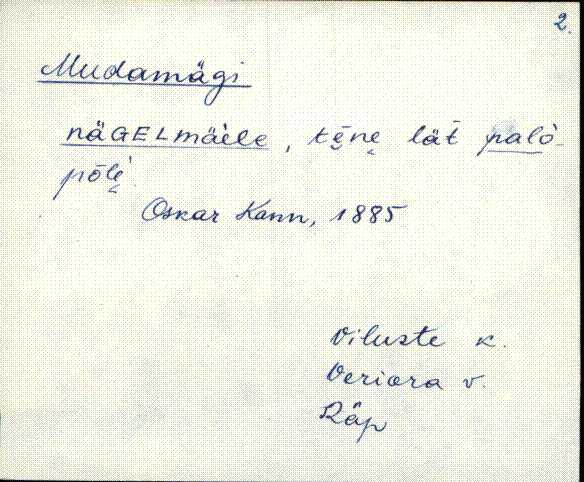 2.
Mudamägi
näGELmäele, tȩ̄nȩ lät́ paló-
pȭlé
Oskar Kann, 1885
Viluste k.
Veriora v.
Räp